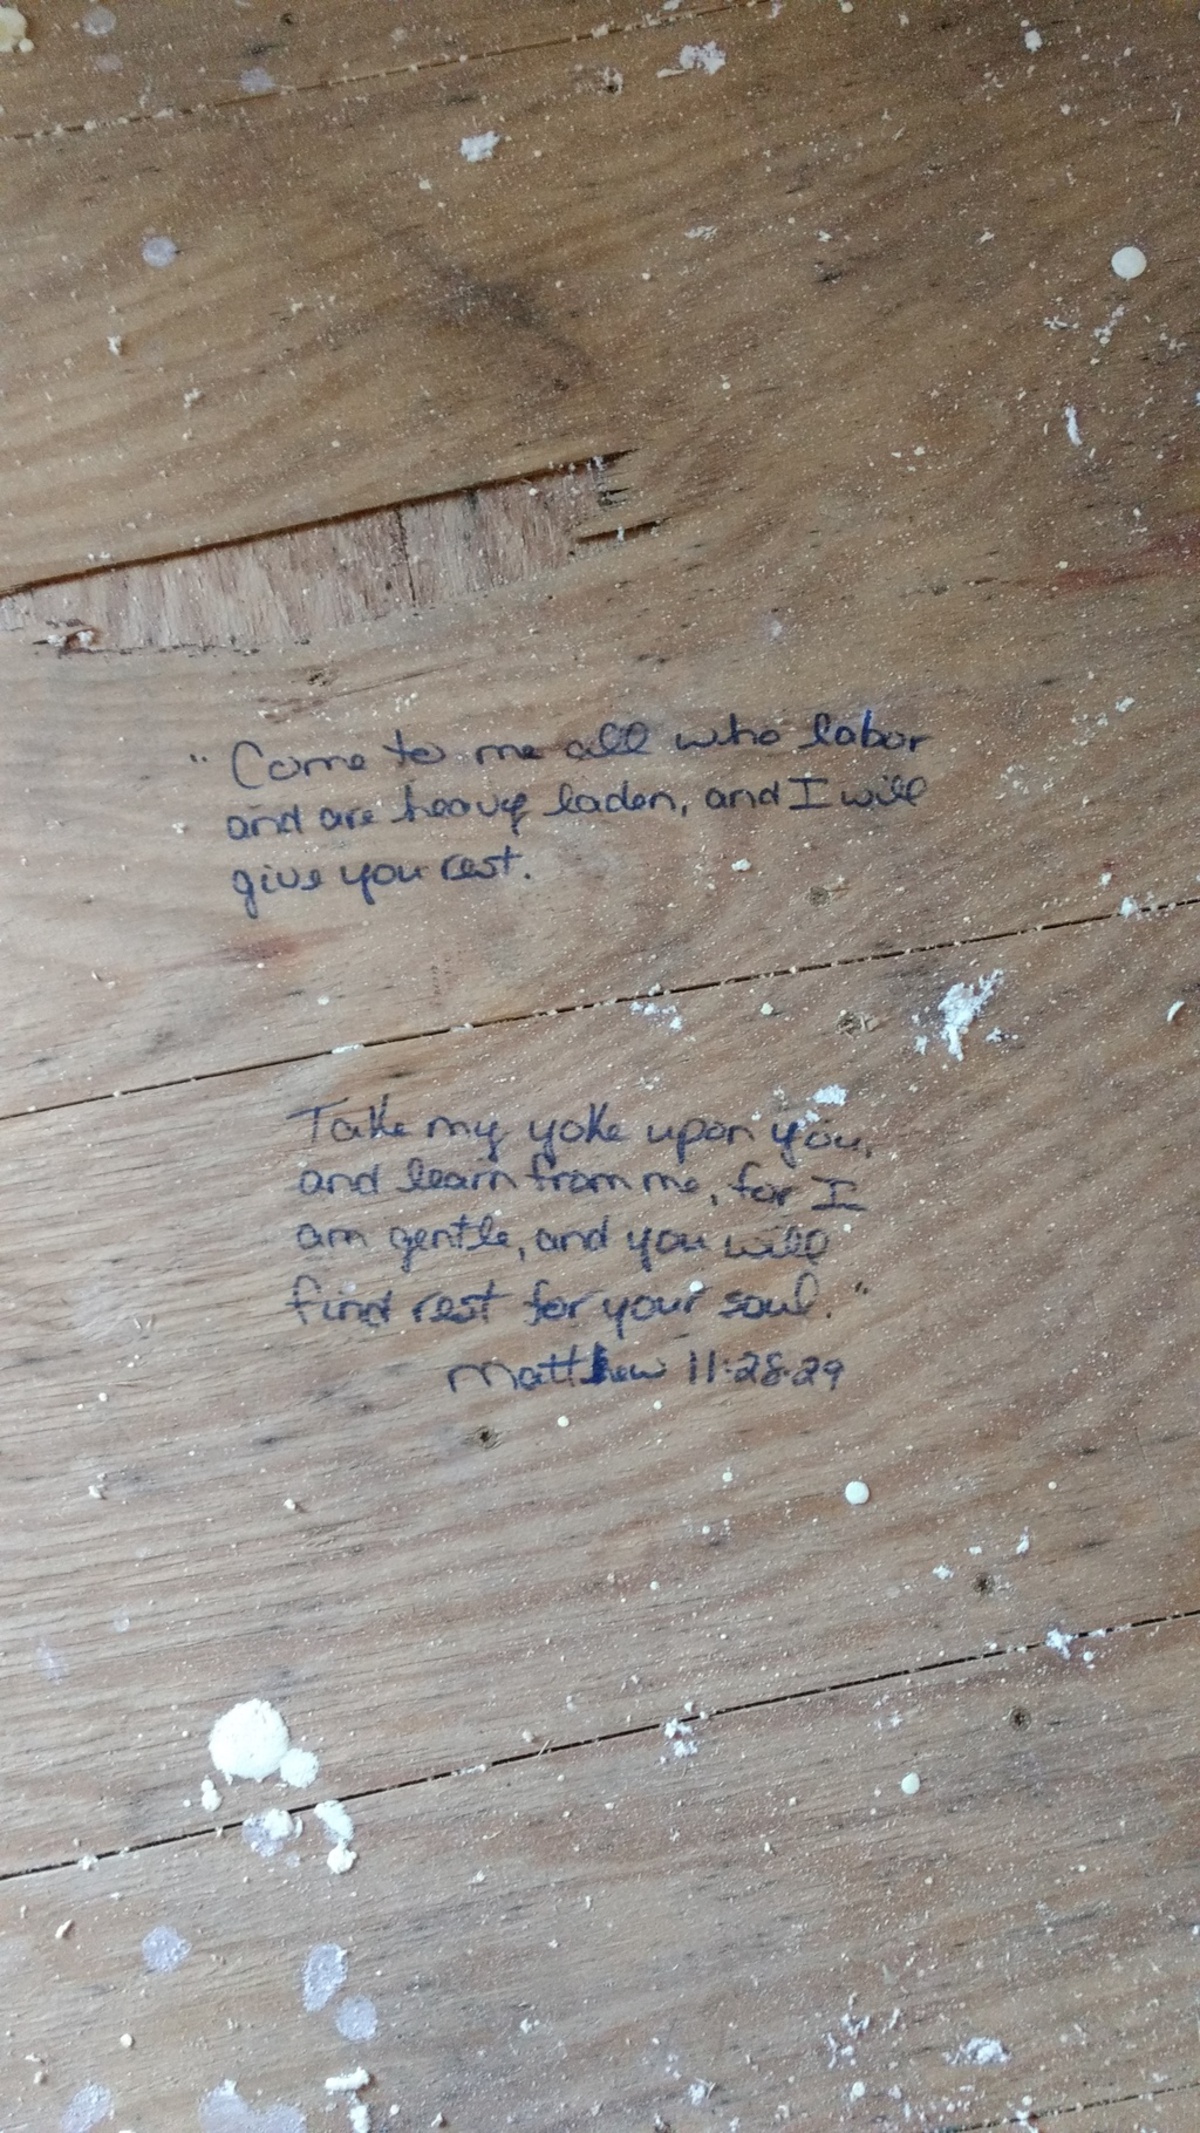 "Come to me all who labor
and are heavy laden, and I will
give you rest.
Take my yoke upon you,
and learn from me, for I
am gentle, and you will
find rest for your soul."
Matthew 11:28-29